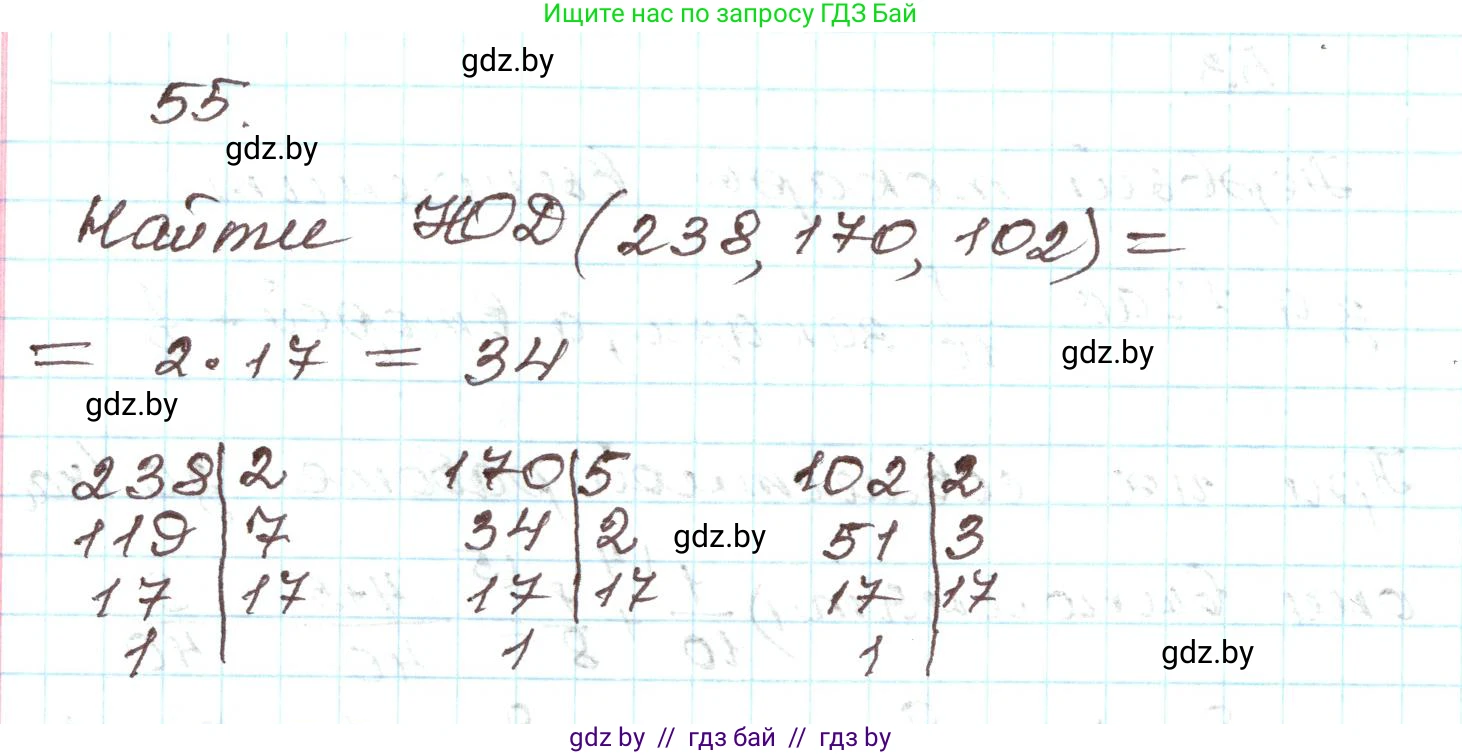 Ищите нас по запросу ГДЗ Бай
gdz.by
55.
gdz.by
Найти НОД (238, 170, 102) =
= 2 · 17 = 34
gdz.by
gdz.by
238 | 2 170 | 5 102 | 2
119 | 7 34 | 2 gdz.by 51 | 3
17 | 17 17 | 17 17 | 17
1 | 1 1 |
gdz.by
gdz.by // гдз бай // гдз by